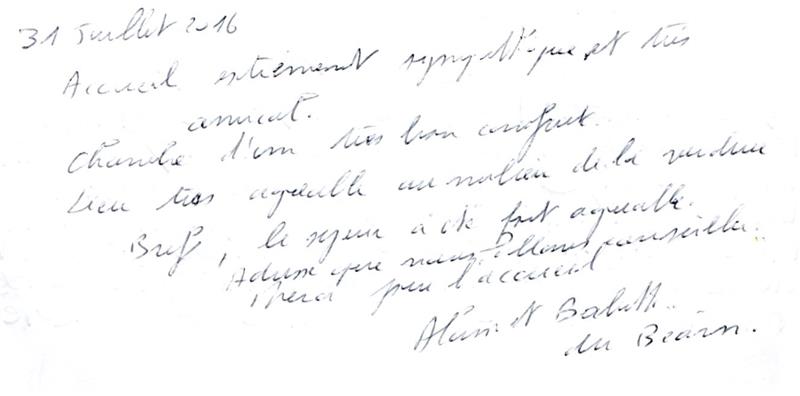 31 Juillet 2016
Accueil extrêmement sympathique et très
amical.
Chambre d'un très bon confort.
Lieu très agréable au milieu de la verdure
Bref, le séjour a été fort agréable.
Adresse que nous allons conseiller.
Merci pour l'accueil
Alain et Babeth
du Béarn.